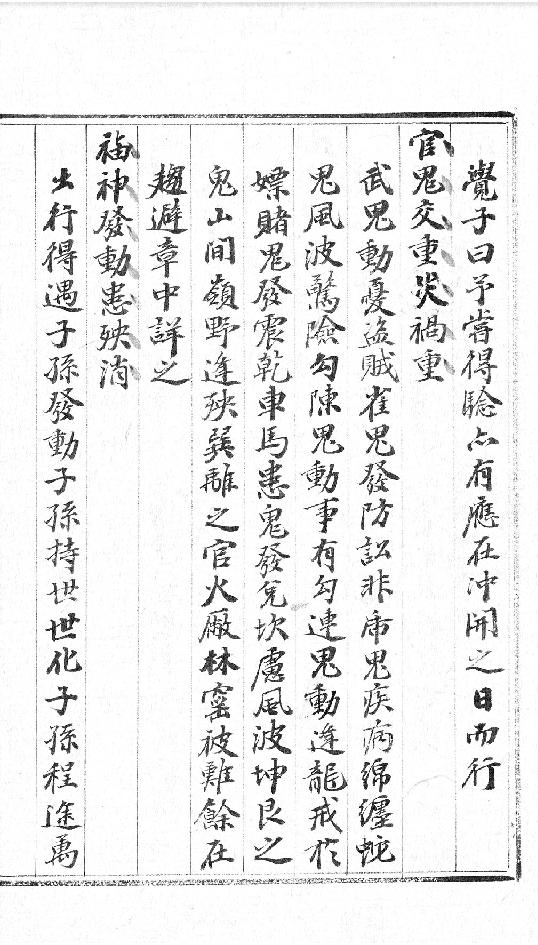 覺子曰予嘗得驗亦有應在冲開之日而行
官鬼交重災禍重
武鬼動憂盜賊雀鬼發防訟非席鬼疾病綿纏蛇
鬼風波驚險勾陳鬼動事有勾連鬼動逢龍戒於
嫖賭鬼發震乾車馬患鬼發兌坎慮風波坤艮之
鬼山間嶺野逢殃巽離之官火厰林窰被難餘在
趨避章中詳之
福神發動患殃消
出行得遇子孫發動子孫持世世化子孫程途萬